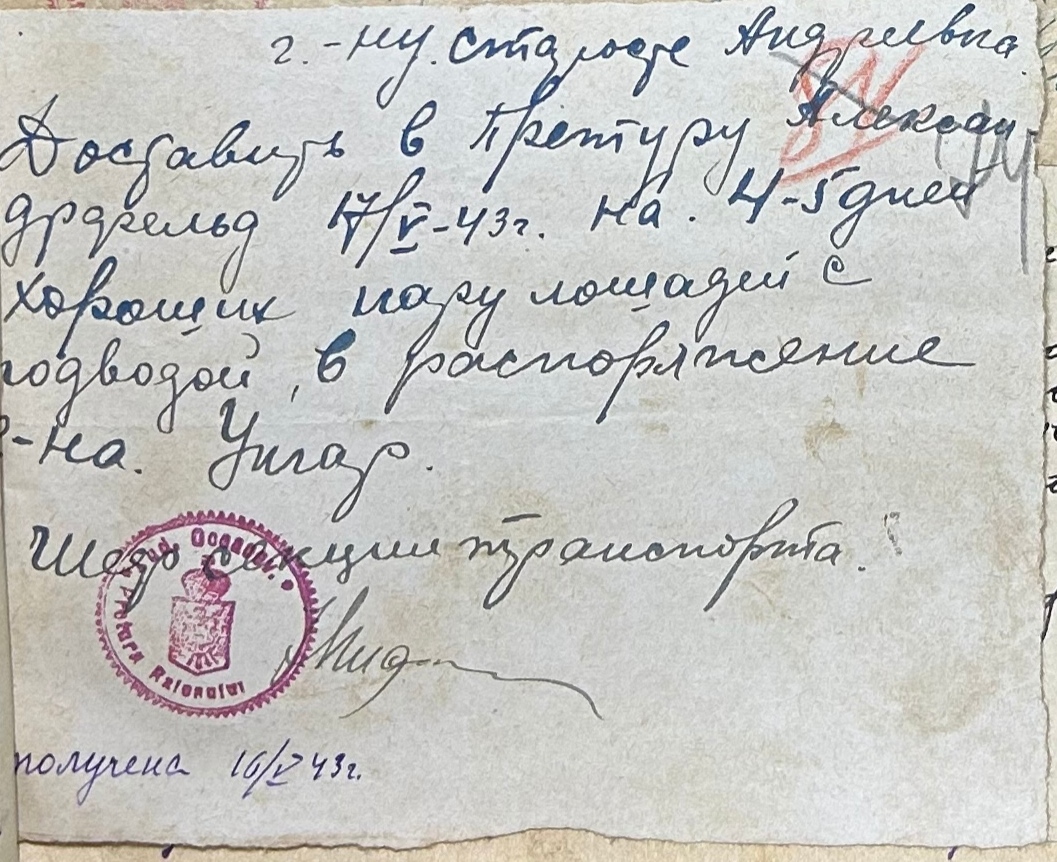 г.-ну. Старосте Андреевка.
84
Доставить в Претуру Алексан-
дрфельд 17/V-43г. на. 4-5 дней
хороших пару лошадей с
подводой, в распоряжение
г-на. Унгар.
Шеф секции транспорта.
Jud.
Pretura Raionului
получена 16/V 43г.